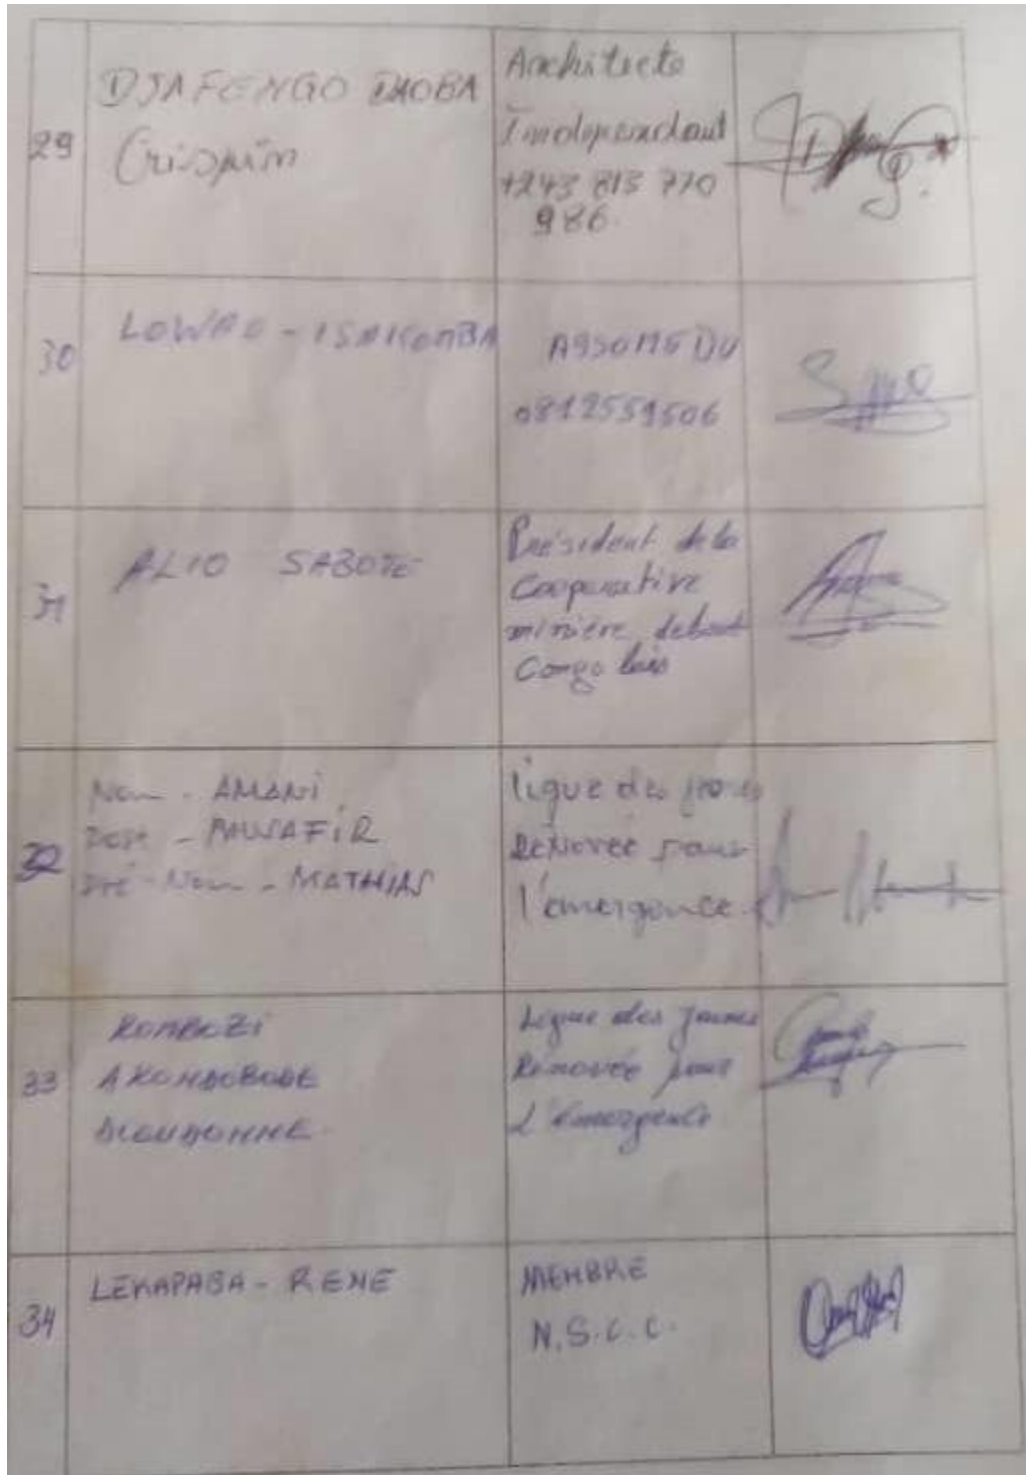 29
DJAFENGO
Crispin
Architecte
Indépendant
+243 813 770
986.
30
LOWAO - ISAKOMBA
0812551506
31
ALIO SABOTE
Président de la
Coopérative
minière debout
Congolais
32
Nom - AMANI
Post -
Pré-Nom - MATHIAS
Ligue des jeunes
Rénovée pour
l'émergence
33
DIEUDONNE
Ligue des jeunes
Rénovée pour
L'émergence
34
LEKAPABA - RENE
MEMBRE
N.S.C.C.